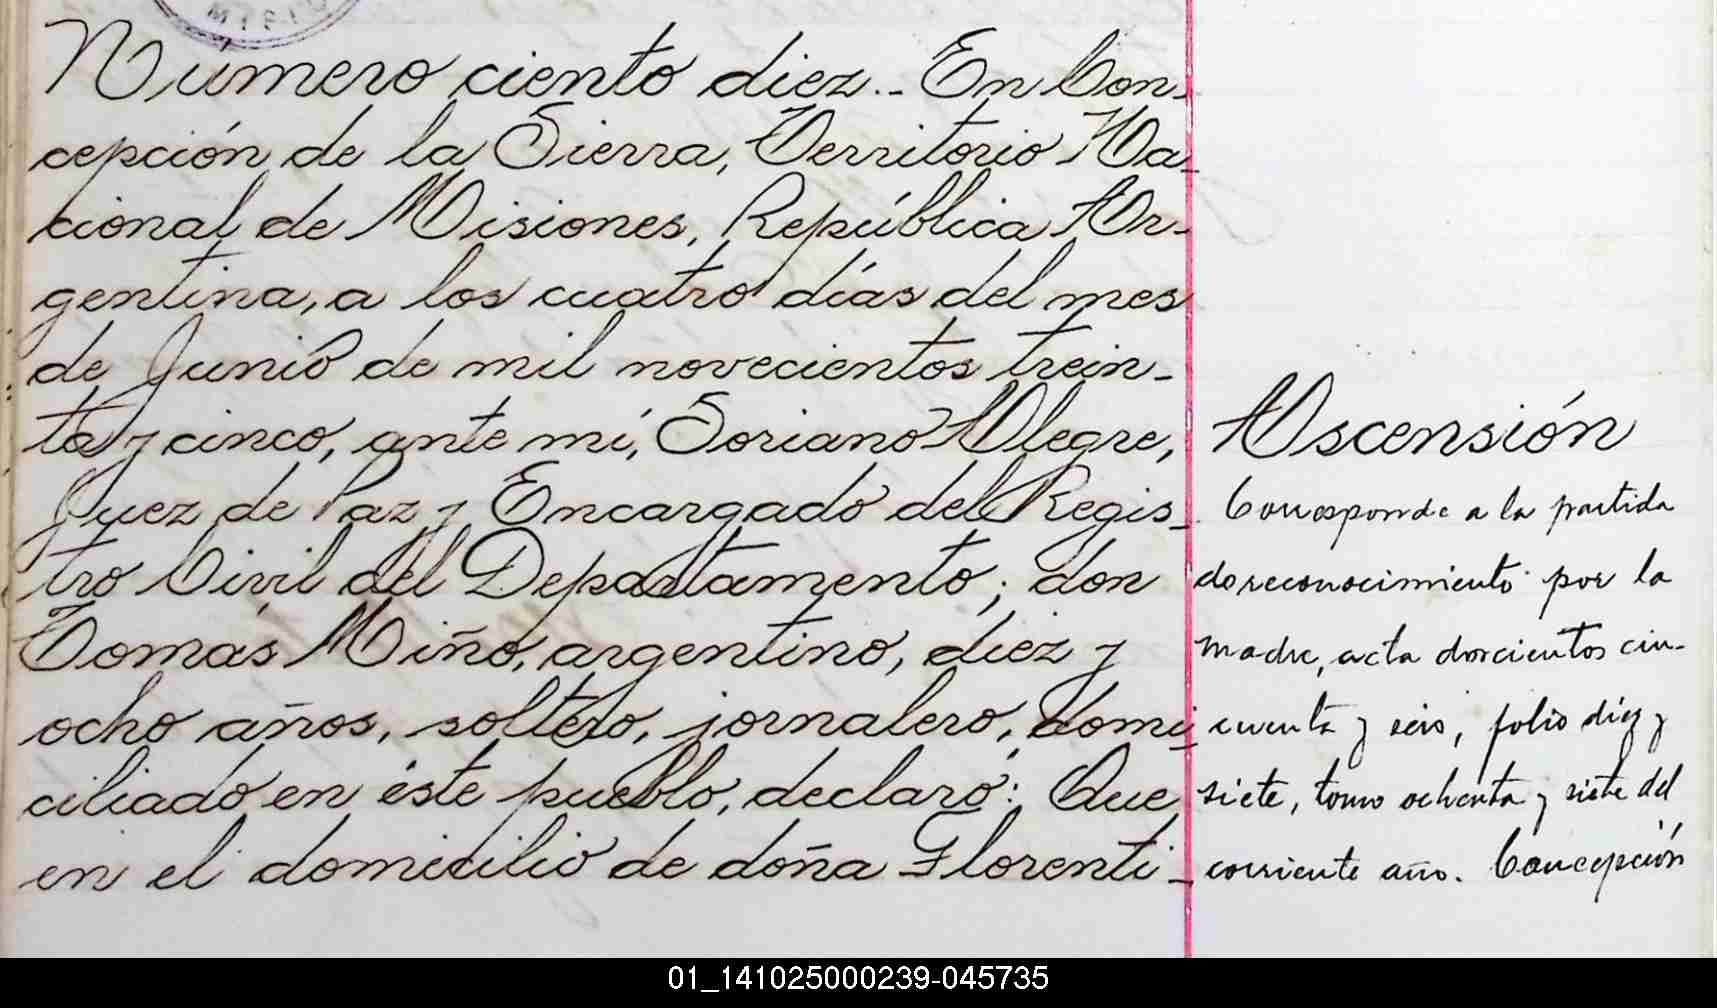 Número ciento diez.. En Con
cepción de la Sierra, Territorio Na-
cional de Misiones, República Ar-
gentina, a los cuatro días del mes
de Junio de mil novecientos trein-
ta y cinco, ante mí, Soriano Alegre,
Juez de Paz y Encargado del Regis-
tro Civil del Departamento; don
Tomás Miño, argentino, diez y
ocho años, soltero, jornalero, domi-
ciliado en éste pueblo, declaró: Que
en el domicilio de doña Florenti-
Ascensión
Corresponde a la partida
de reconocimiento por la
madre, acta doscientos cin-
cuenta y seis, folio diez y
siete, tomo ochenta y siete del
corriente año. Concepción
01_141025000239-045735